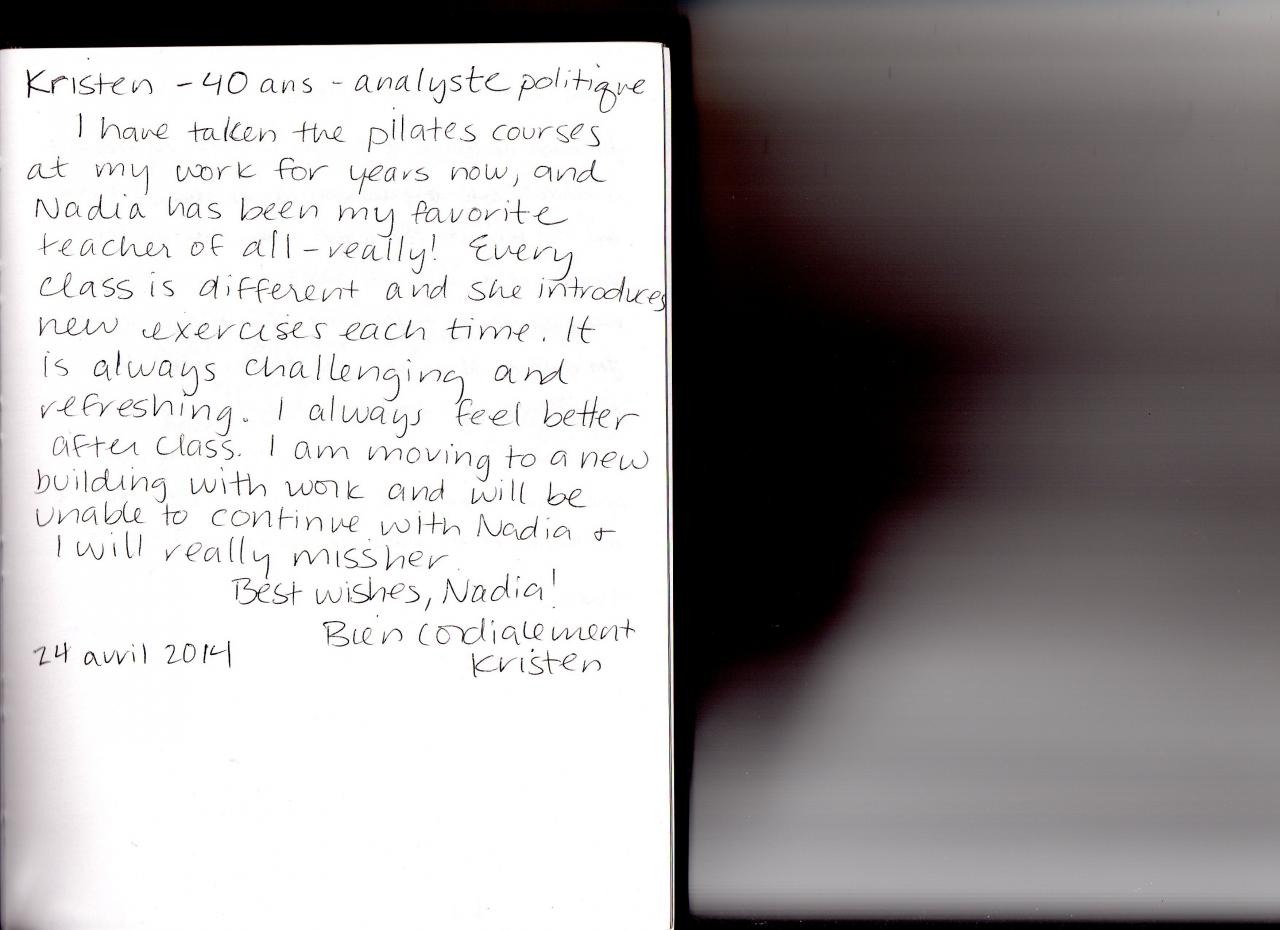 Kristen - 40 ans - analyste politique
I have taken the pilates courses
at my work for years now, and
Nadia has been my favorite
teacher of all - really! Every
class is different and she introduces
new exercises each time. It
is always challenging and
refreshing. I always feel better
after class. I am moving to a new
building with work and will be
unable to continue with Nadia &
I will really miss her.
Best wishes, Nadia!
Bien cordialement
24 avril 2014 Kristen